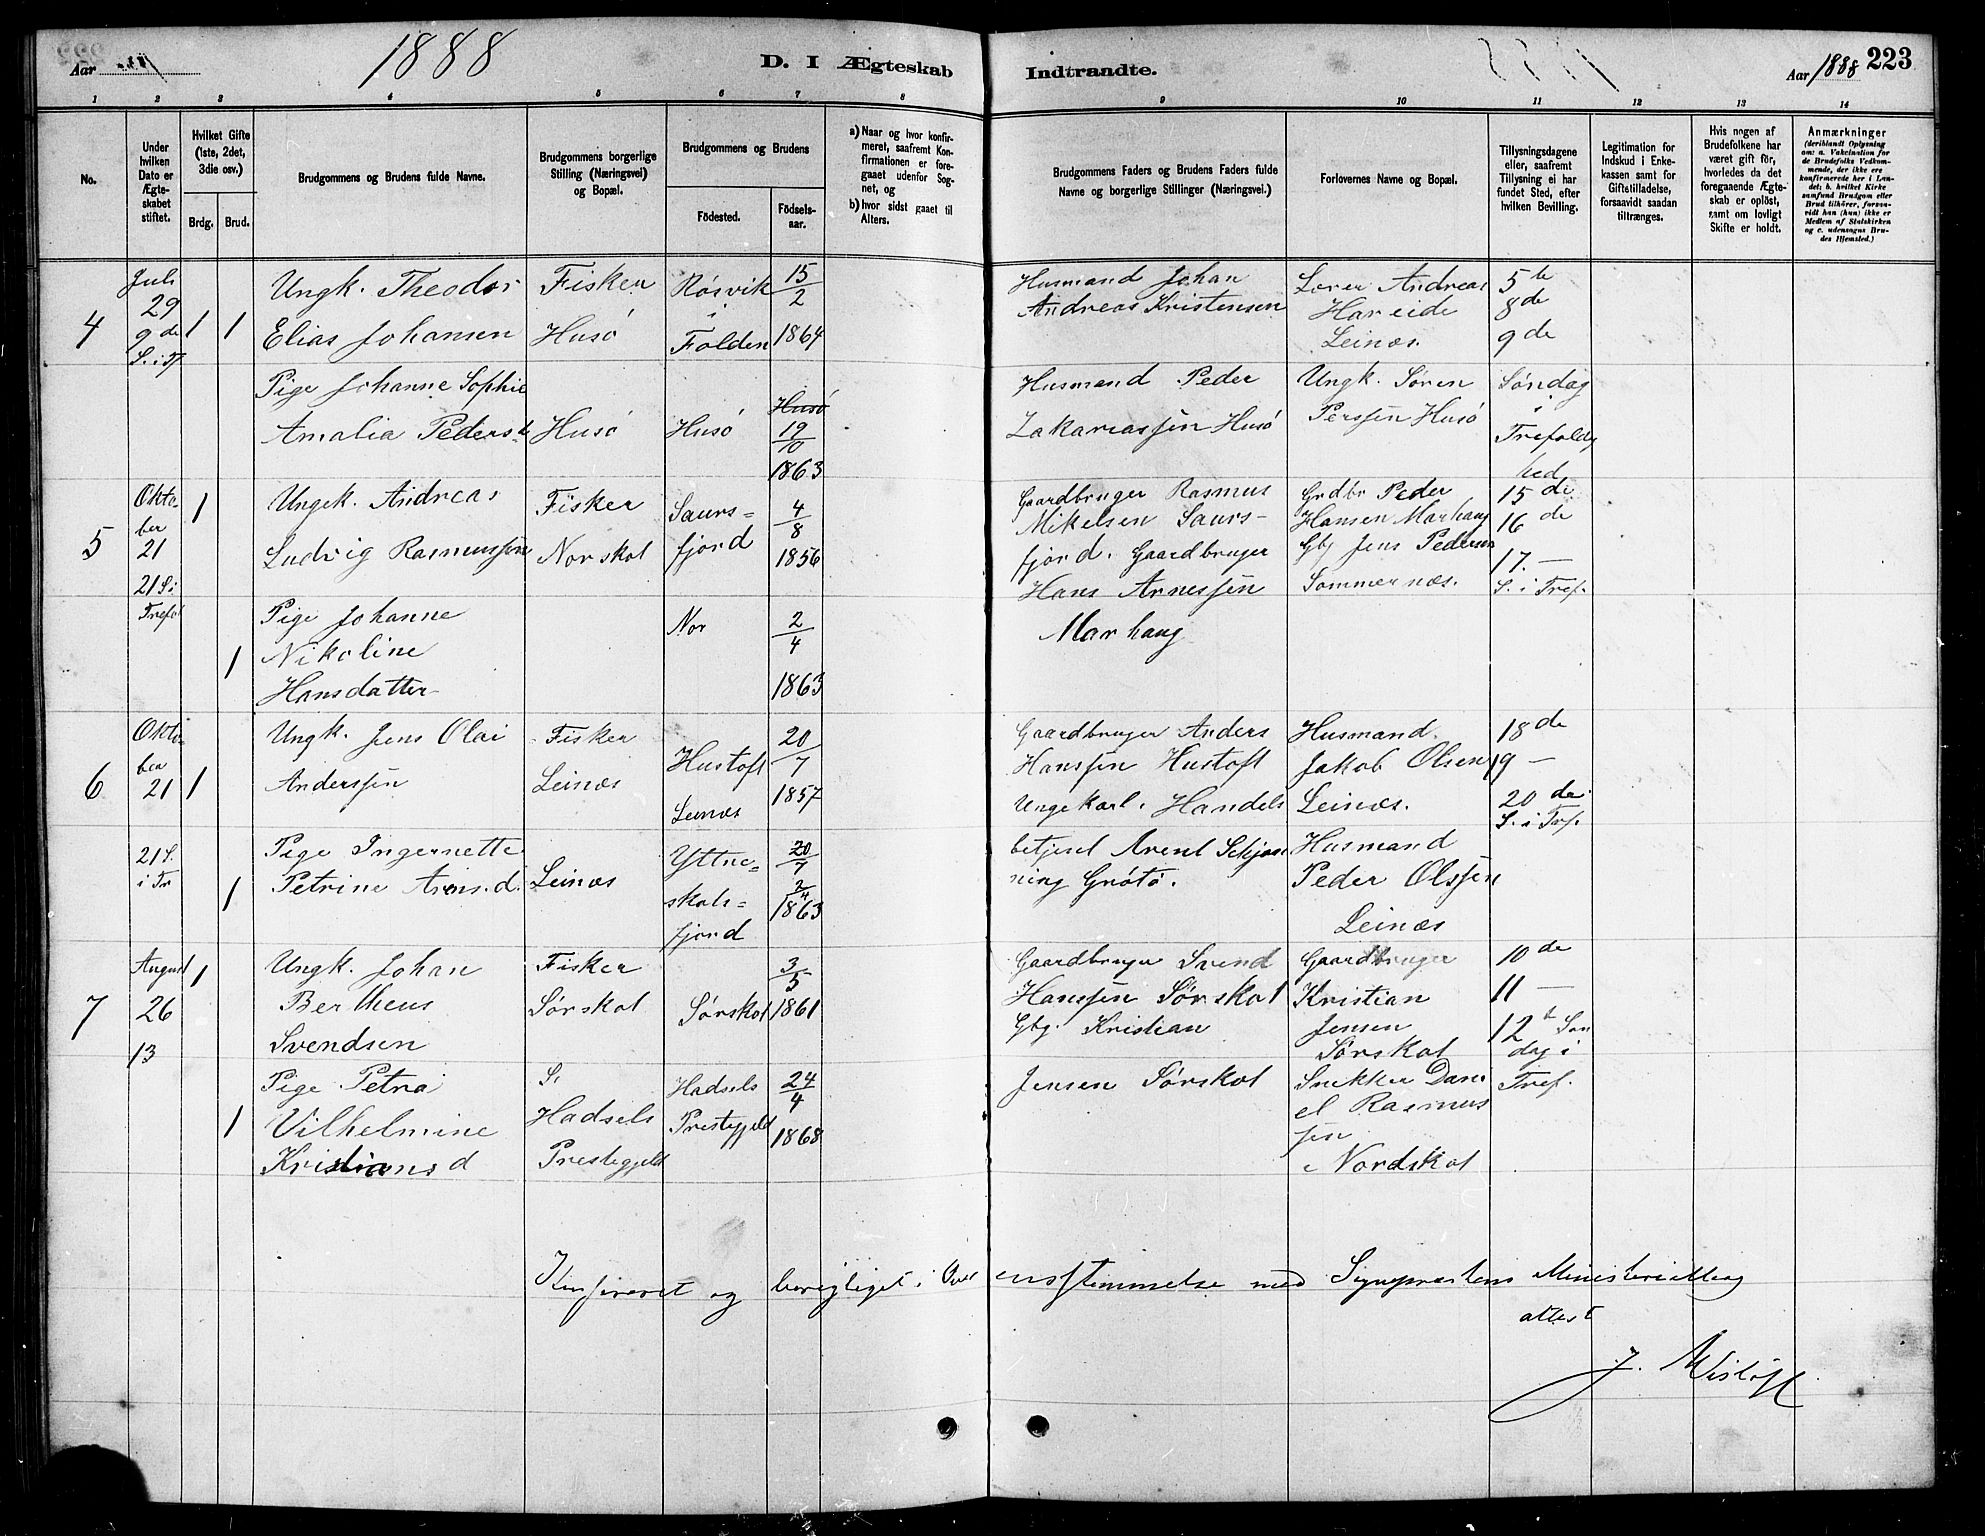 Aar
1888
D. I Ægteskab
Indtraadte.
Aar 1888
223
1 2 3 4 5 6 7 8 9 10 11 12 13 14
No.
Under
hvilken
Dato er
Ægte-
skabet
stiftet.
Hvilket Gifte
(1ste, 2det,
3die osv.)
Brdg. Brud.
Brudgommens og Brudens fulde Navne.
Brudgommens borgerlige
Stilling (Næringsvei)
og Bopæl.
Brudgommens og Brudens
Födested.
Födsels-
aar.
a) Naar og hvor konfir-
meret, saafremt Kon-
firmationen er fore-
gaaet udenfor Sog-
net, og
b) hvor sidst gaaet til
Alters.
Brudgommens Faders og Brudens Faders fulde
Navne og borgerlige Stillinger (Næringsvei.)
Forlovernes Navne og Bopæl.
Tillysningsdagene
eller, saafremt
Tillysning ei har
fundet Sted, efter
hvilken Bevilling.
Legitimation for
Indskud i Enke-
kassen samt for
Giftetilladelse,
forsaavidt saadan
tiltrænges.
Hvis nogen af
Brudefolkene har
været gift før,
hvorledes da det
foregaaende Ægte-
skab er oplöst,
samt om lovligt
Skifte er holdt.
Anmærkninger
(deriblandt Oplysning
om: a. Vakcination for
de Brudefolks Vedkom-
mende, der ikke ere
konfirmerede her i Lan-
det; b. hvilket Kirke
samfund Brudgom eller
Brud tilhörer, forsaa-
vidt han (hun) ikke er
Medlem af Statskirken
og c. udensogns Bru-
des Hjemsted.)
4
Juli
29
9 de
S. i Tf
1 1
Ungk. Theodor
Elias Johansen
Fisker
Husö
Rösvik
i
Folden
15
2
1864
Husmand Johan
Andreas Kristensen
Lærer Andreas
Hareide
Leinæs.
5 te
8 de
9 de
Pige Johanne Sophie
Amalia Peders
Husö
Husö
Husö
19
10
1863
Husmand Peder
Zakariassen Husö
Ungk. Sören
Perssen Husö
Söndag
i
Trefoldig
hed
5
Okto-
ber
21
21 S i
Trefol
1
Ungek. Andreas
Ludvig Rasmussen
Fisker
Norskot
Saurs=
fjord
4
8
1856
Gaardbruger Rasmus
Mikelsen Saurs-
fjord. Gaardbruger
Hans Arnessen
Marhaug
Grdbr Peder
Hansen Marhaug
Gbg Jens Pedersen
Sommernæs.
15 de
16 de
17. —
S. i Tref.
1
Pige Johanne
Nikoline
Hansdatter
Nor
2
4
1863
6
Okto-
ber
21
1
Ungk. Jens Olai
Anderssen
Fisker
Leinæs
Hustoft
Leinæs
20
7
1857
Gaardbruger Anders
Hanssen Hustoft
Ungekarl. Handels
Husmand
Jakob Olsen
Leinæs.
18 de
19 —
20 de
S. i Tref.
21 S.
i Tr
1
Pige Ingernette
Petrine Arns.d.
Leinæs
Yttre=
skots=
fjord
20
7
2
4
1863
betjent Arent Schjön
ning Grötö.
Husmand
Peder Olssen
Leinæs
7
August
26
13
1
Ungk. Johan
Bertheus
Svendsen
Fisker
Sörskot
Sörskot
3
5
1861
Gaardbruger Svend
Hanssen Sörskot
Gbg. Kristian
Gaardbruger
Kristian
Jensen
Sörskot
10 de
11 —
12 t Sön
dag i
Tref.
1
Pige Petra
Vilhelmine
Kristians d
S.
Hadsels
Prestegjeld
Hadsels
Prestegjeld
24
4
1868
Jensen Sörskot
Snikker Dani
el Rasmus
sen
Nordskot
Konfereret og berigtiget i Overensstemmelse med Sognepræstens Ministerialbog
attest
J. Wisløff